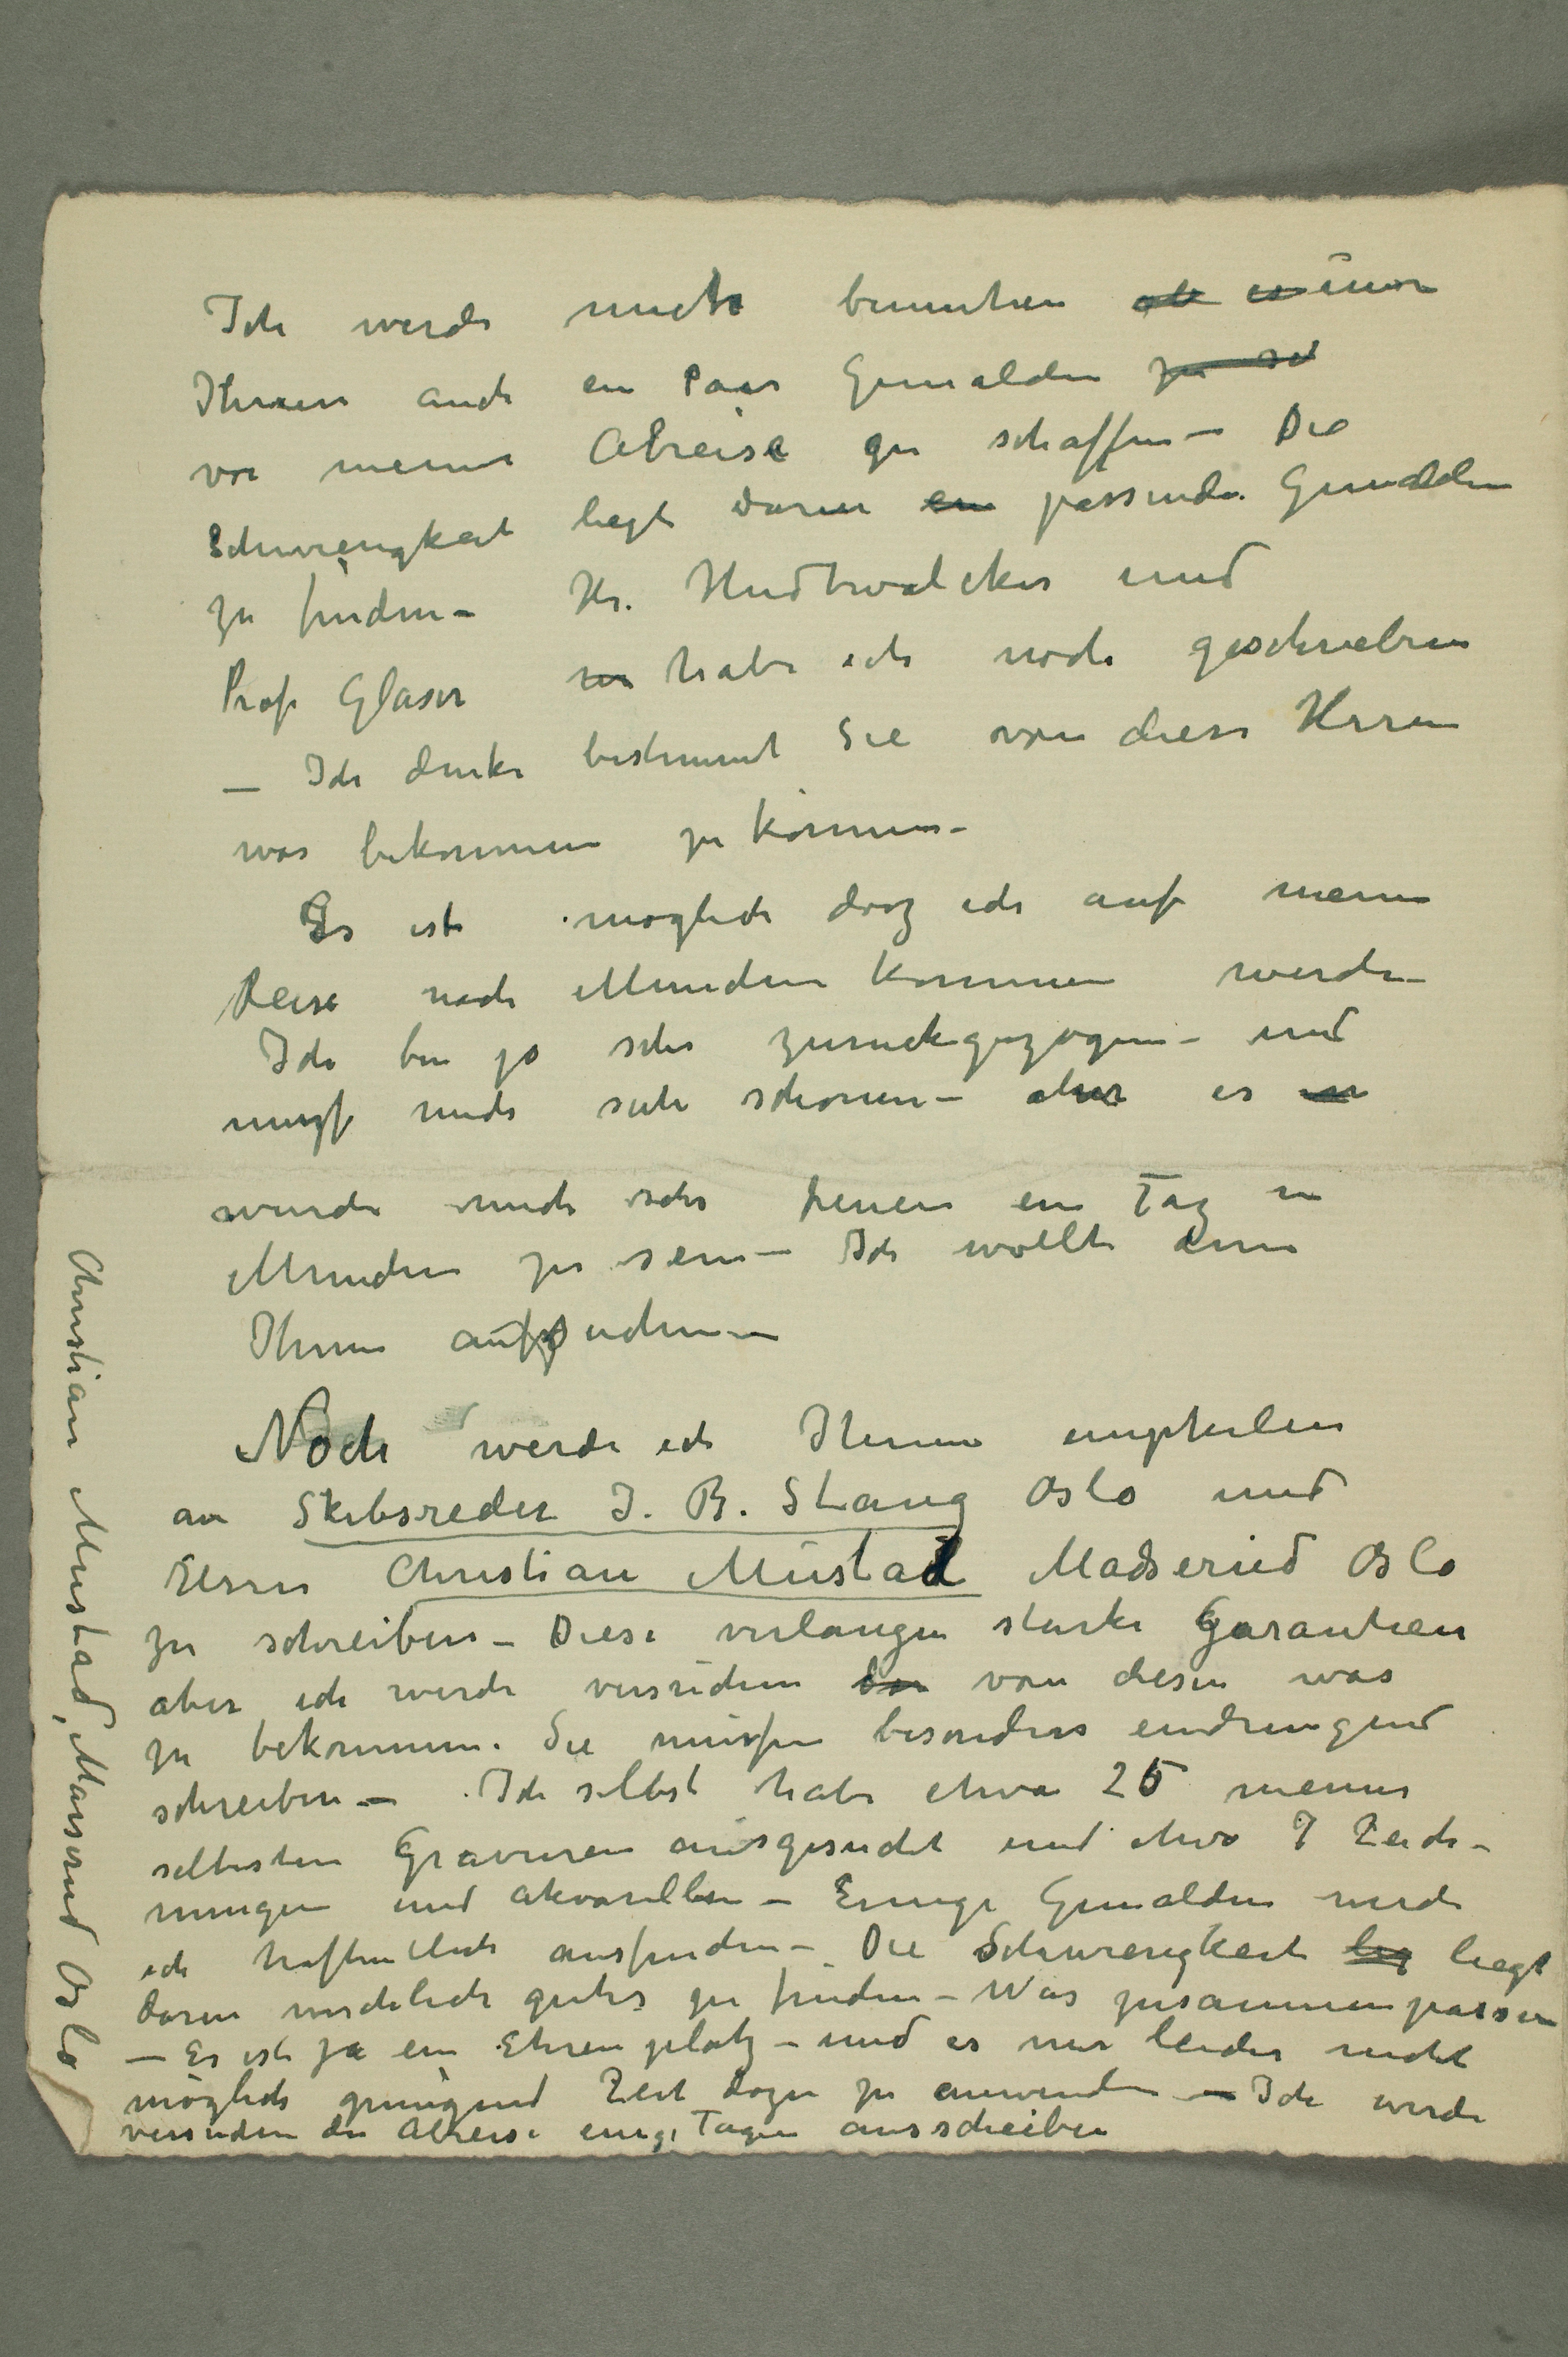 Ich werde mich bemühen
Ihnen auch ein Paar Gemälden
vor meiner Abreise zu schaffen – Die
Schwierigkeit liegt darin passende Gemälden
zu finden – Hr. Hudtwalcker und
Prof Glaser habe ich noch geschrieben
– Ich denke bestimmt Sie von diese Herren
was bekommen zu können –
Es ist möglich dasz ich auf meine
Reise nach München kommen werde –
Ich bin ja sehr zurückgezogen – und
musz mich sehr schonen – aber es
wurde mich sehr freuen ein Tag in
München zu sein – Ich wollte denn
Ihnen aufsuchen –
Noch werde ich Ihnen empfehlen
an Skibsreder J. B. Stang Oslo und
Herrn Christian Mustad Madserud Oslo
zu schreiben – Diese verlangen starke Garantien
aber ich werde versuchen von diesen was
zu bekommen. Sie müssen besonders eindringend
schreiben – Ich selbst habe etwa 25 meiner
seltesten Gravuren ausgesucht und etwa 7 Zeich-
nungen und Akvarellen – Einige Gemälden werde
ich hoffentlich ausfinden – Die Schwierigkeit liegt
darin wirchlich gutes zu finden – Was zusammenpassen
– Es ist ja ein Ehrenplatz – und es mir leider nicht
möglich genügend Zeit dazu zu anwenden – Ich werde
versuchen die Abreise einige Tagen ausschieben
Christian Mustad, Manserud Oslo